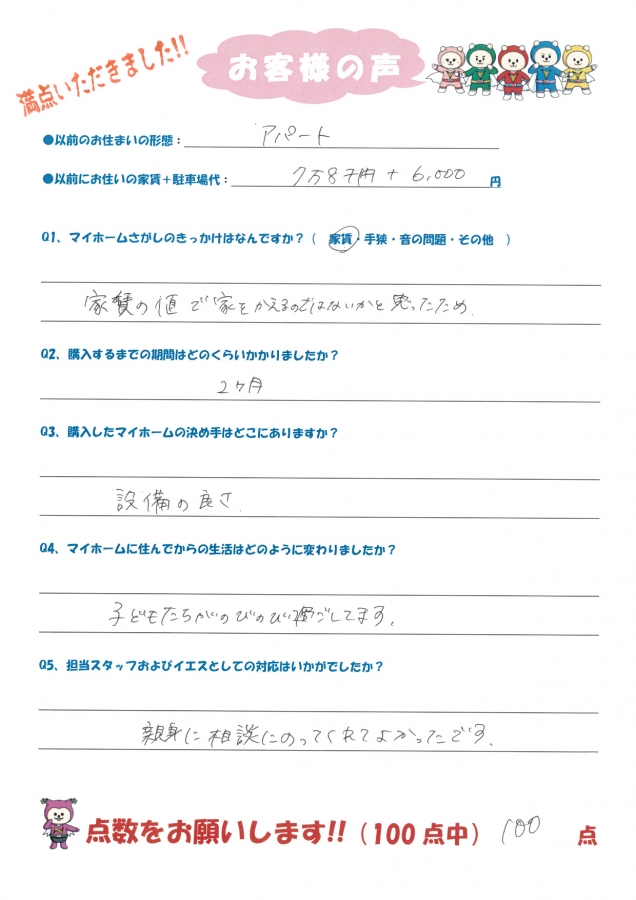 満点いただきました!!
お客様の声
●以前のお住まいの形態：アパート
●以前にお住いの家賃＋駐車場代：7万8千円 + 6,000 円
Q1、マイホームさがしのきっかけはなんですか？（ 家賃・手狭・音の問題・その他 ）
家賃の値で家をかえるのではないかと思ったため.
Q2、購入するまでの期間はどのくらいかかりましたか？
2ヶ月
Q3、購入したマイホームの決め手はどこにありますか？
設備の良さ.
Q4、マイホームに住んでからの生活はどのように変わりましたか？
子どもたちがのびのび過ごしてます.
Q5、担当スタッフおよびイエスとしての対応はいかがでしたか？
親身に相談にのってくれてよかったです.
点数をお願いします!!（100点中） 100 点